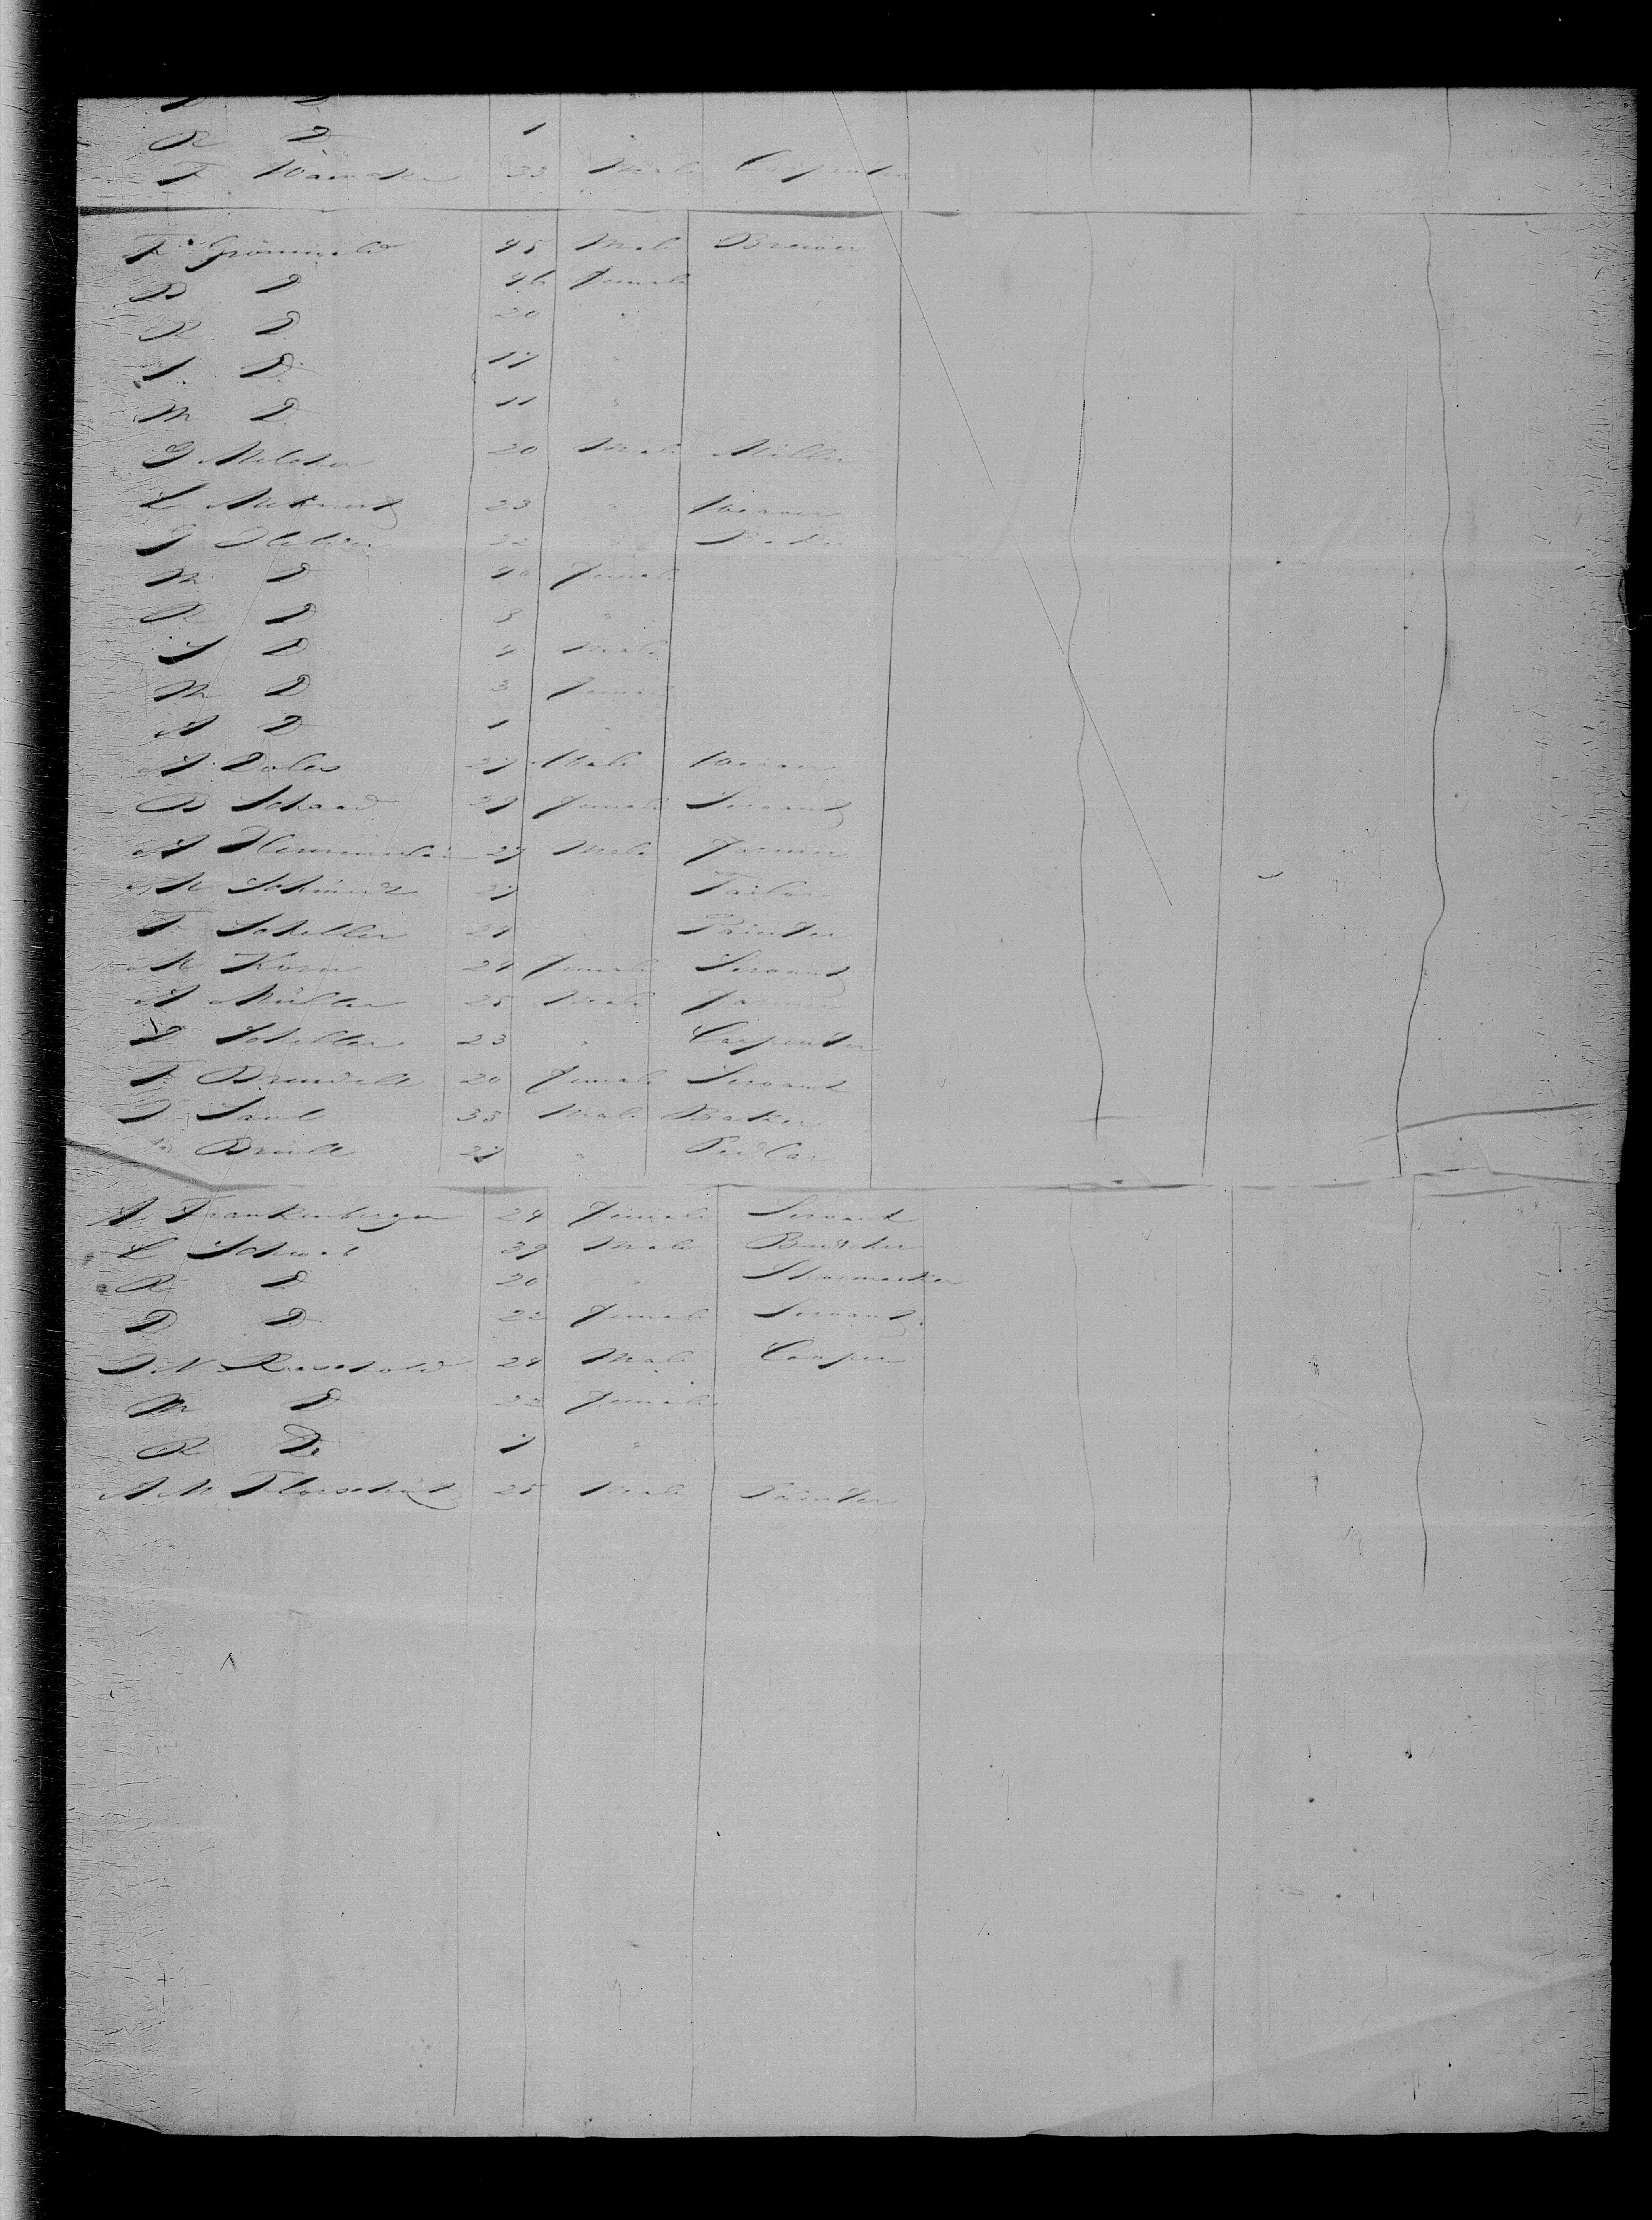 R D 1 "
F 33 Male Carpenter
F Grönewald 45 Male Brewer
B D 46 Female
R D 20 "
S. D 17 "
M D 11 "
G Melcher 20 Male Miller
C 23 " Weaver
J 32 " Baker
M D 40 Female
R D 8 "
S D 4 Male
M D 3 Female
A D 1 "
A Doles 27 Male Weaver
B Schaad 39 Female Servant
A 27 Male Farmer
M Schmidt 27 " Tailor
F Scheller 24 " Painter
M Korn 24 Female Servant
A Müller 25 Male Farmer
Scheller 23 " Carpenter
F. 20 Female Servant
J Saul 35 Male Baker
Brüll 27 " Pedlar
A. Frankenberger 24 Female Servant
C Schwab 39 Male Butcher
R D 20 " Shoemaker
D D 22 Female Servant
J N 24 Male Cooper
M D 22 Female
R D 7 "
A M Florschütz 25 Male Painter